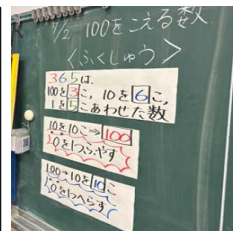 7/2 100をこえる数
<ふくしゅう>
365は、
100を3こ、10を6こ、
1を5こあわせた数
10を10こ→100
0を1つふやす
100→10を10こ
0を1つへらす